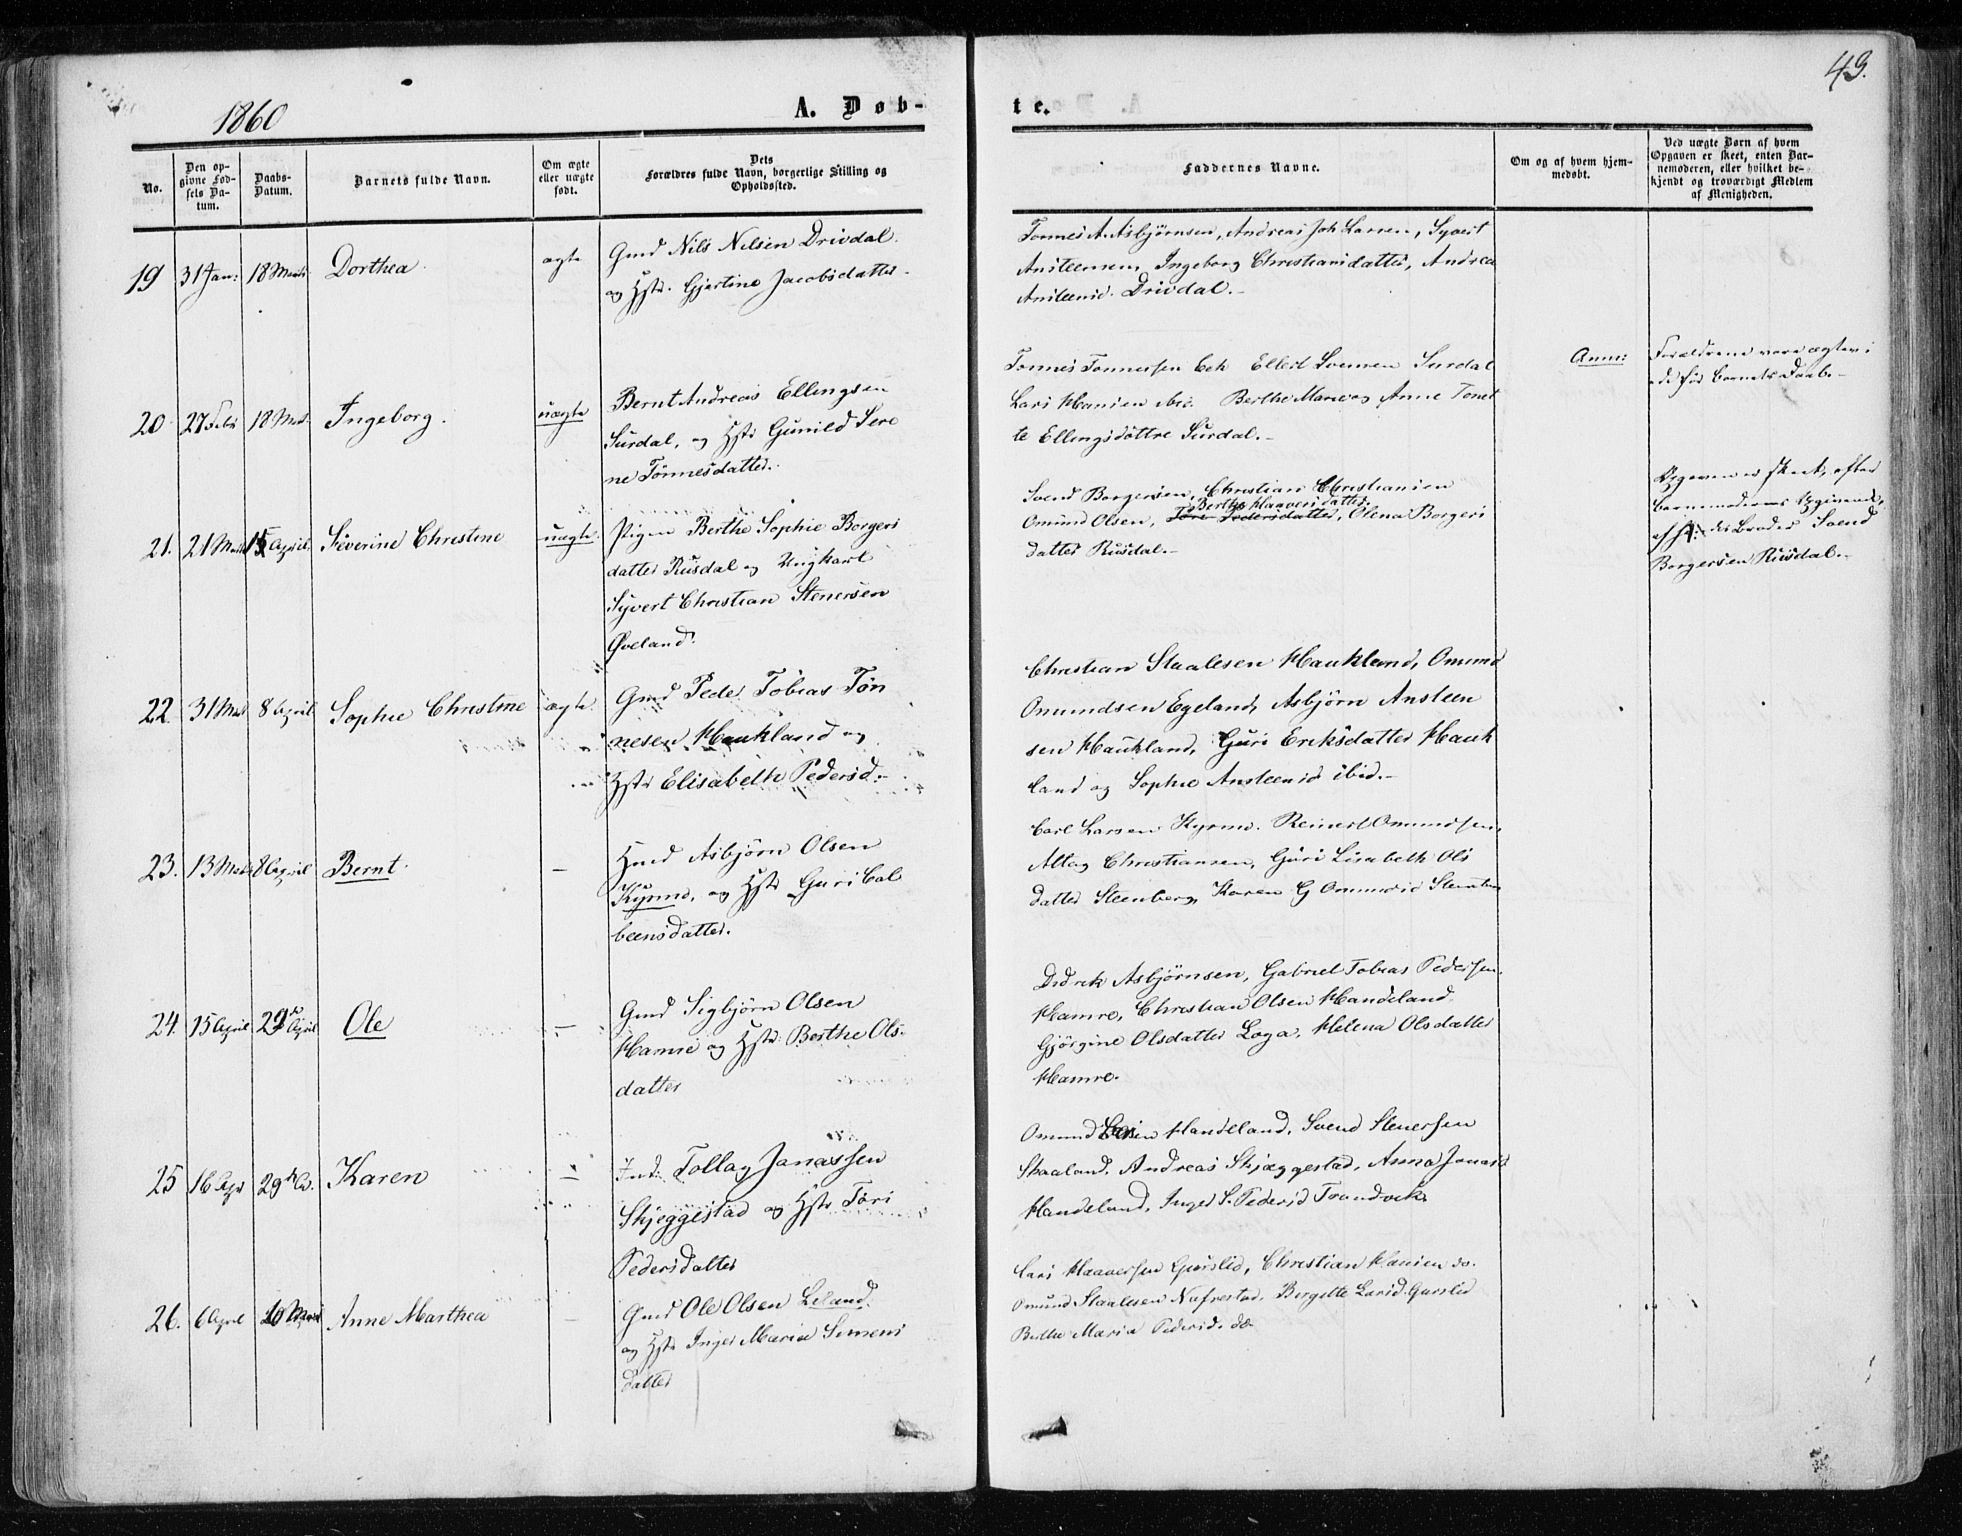 1860
A. Døb-
te.
43.
No.
Den op-
givne Fød-
sels Da-
tum.
Daabs-
Datum.
Barnets fulde Navn.
Om ægte
eller uægte
født.
Dets
Forældres fulde Navn, borgerlige Stilling og
Opholdssted.
Faddernes Navne.
Om og af hvem hjem-
medøbt.
Ved uægte Børn af hvem
Opgaven er skeet, enten Bar-
nemoderen, eller hvilket be-
kjendt og troværdigt Medlem
af Menigheden.
19 31 Jan: 18 Marts Dorthea. ægte
Gmd Nils Nilsen Drivdal.
og Hstr. Gjertine Jacobsdatter
Tonnes A. Asbjørnsen, Andreas Joh Larsen, Syvert
Ansteensen, Ingeborg Christiansdatter, Andrea
Ansteensd. Drivdal.-
20 27 Febr 18 Mart. Ingeborg. uægte
Bernt Andreas Ellingsen
Surdal, og Hstr Gunild Sere
ne Tönnesdatter.
Tonnes Tonnessen Eek Ellert Svensen Surdal
Lars Hansen ibid. Berthe Marie og Anne Tonet
te Ellingsdöttre Surdal.-
Anm:
Forældrene vare ægtevi-
ede før barnets Daab.-
21. 21 Marts 15 April. Severine Christine uægte
Pigen Berthe Sophie Borgers
datter Rusdal og Ungkarl
Syvert Christian Stenersen
Øveland.
Svend Borgersen, Christian Christiansen
Berthe Haaversdatter
Omund Olsen, Tore Pedersdatter, Olena Borgers
datter Rusdal.-
Opgaven er skeet, efter
barnemoderens Opgivende,
af hendes Broder Svend
Borgersen Rusdal.-
22 31 Mart 8 April Sophie Christine ægte.
Gmd Peder Tobias Tön
nesen Haukland og
Hstr Elisabeth Pedersd.-
Christian Staalesen Haukland, Omund
Omundsen Egeland, Asbjörn Ansteen
sen Haukland, Guri Eriksdatter Hauk
land og Sophie Ansteensd ibid.-
23. 13 Mart 8 April Bernt. -
Hmd Asbjörn Olsen
Kynme, og Hstr Guri Col
beensdatter.
Carl Larsen Kynme. Reinert Omundsen,
Attag Christiansen, Guri Lisabeth Ols
datter Steenberg, Karen G Omundsd Steenberg
24. 15 April 29 April Ole -
Gmd Sigbjörn Olsen
Hamre og Hstr. Berthe Ols-
datter
Didrik Asbjörnsen, Gabriel Tobias Pedersen.
Hamre, Christian Olsen Handeland.
Gjörgine Olsdatter Loga, Helena Olsdatter
Hamre.
25 16 Apr 29 do. Karen -
Ind: Tollag Jonassen
Skjeggestad og Hstr Töri
Pedersdatter
Omund Larsen Handeland, Svend Stenersen
Skaaland, Andreas Skjæggestad, Anna Jonasd
Handeland, Inger S. Pedersd Trandvik.
26. 6 April Anne Marthea -
Gmd Ole Olsen Leland.
og Hstr Inger Maria Simens
datter
Lars Haaversen Gurslid, Christian Hansen do.
Omund Staalesen Nufrestad. Birgitte Larsd. Gurslid
Berthe Maria Pedersd. do